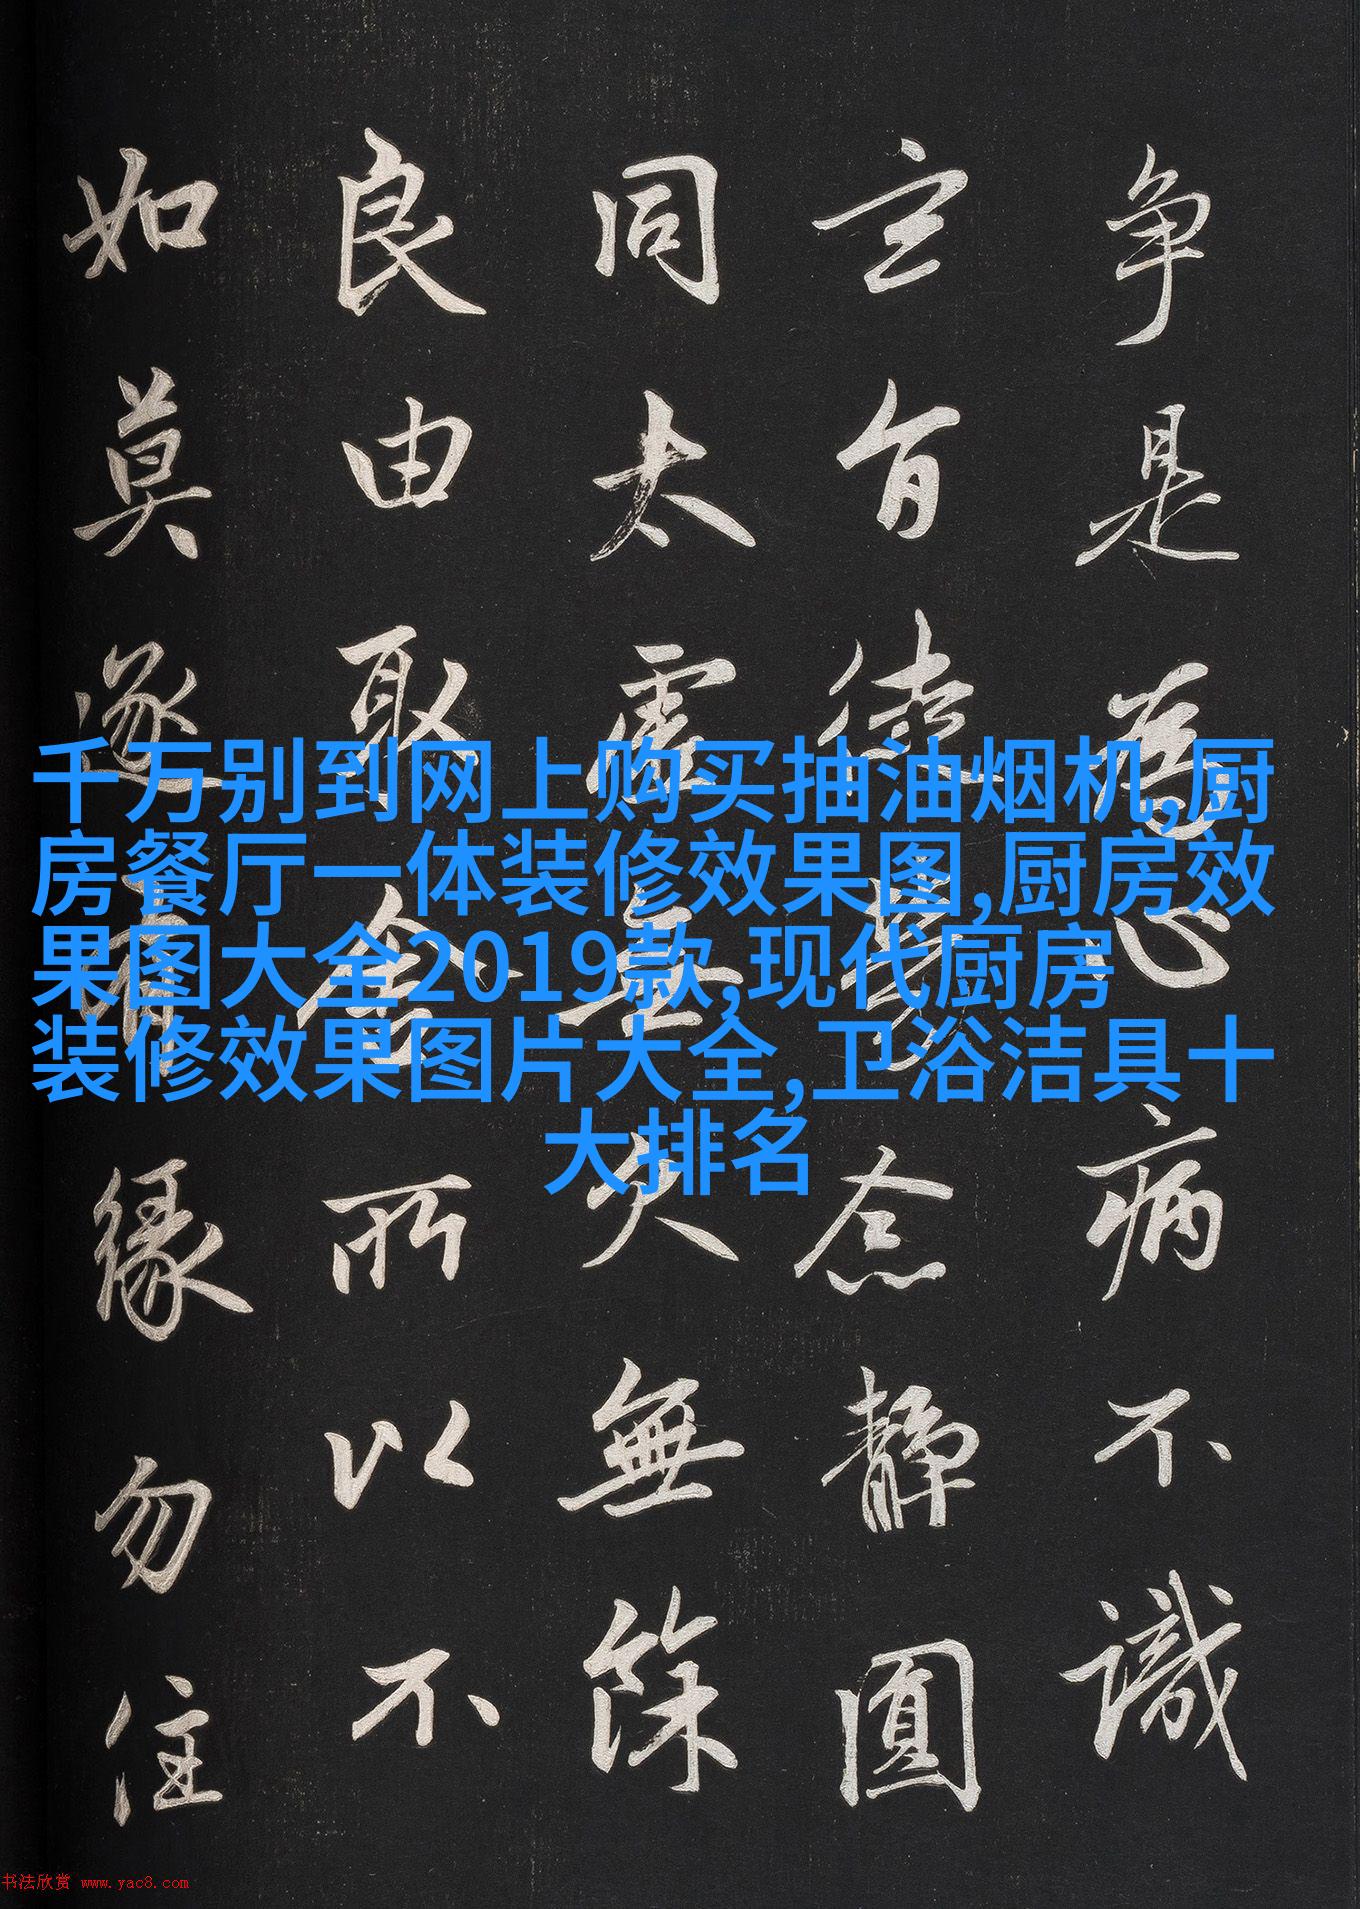 争是為心病不識
玄旨徒勞念静圓
同太虚無欠無餘
良由取舍所以不
如莫逐有緣勿住
千万别到网上购买抽油烟机,厨
房餐厅一体装修效果图,厨房效
果图大全2019款,现代厨房
装修效果图片大全,卫浴洁具十
大排名
书法欣赏 www.yac8.com